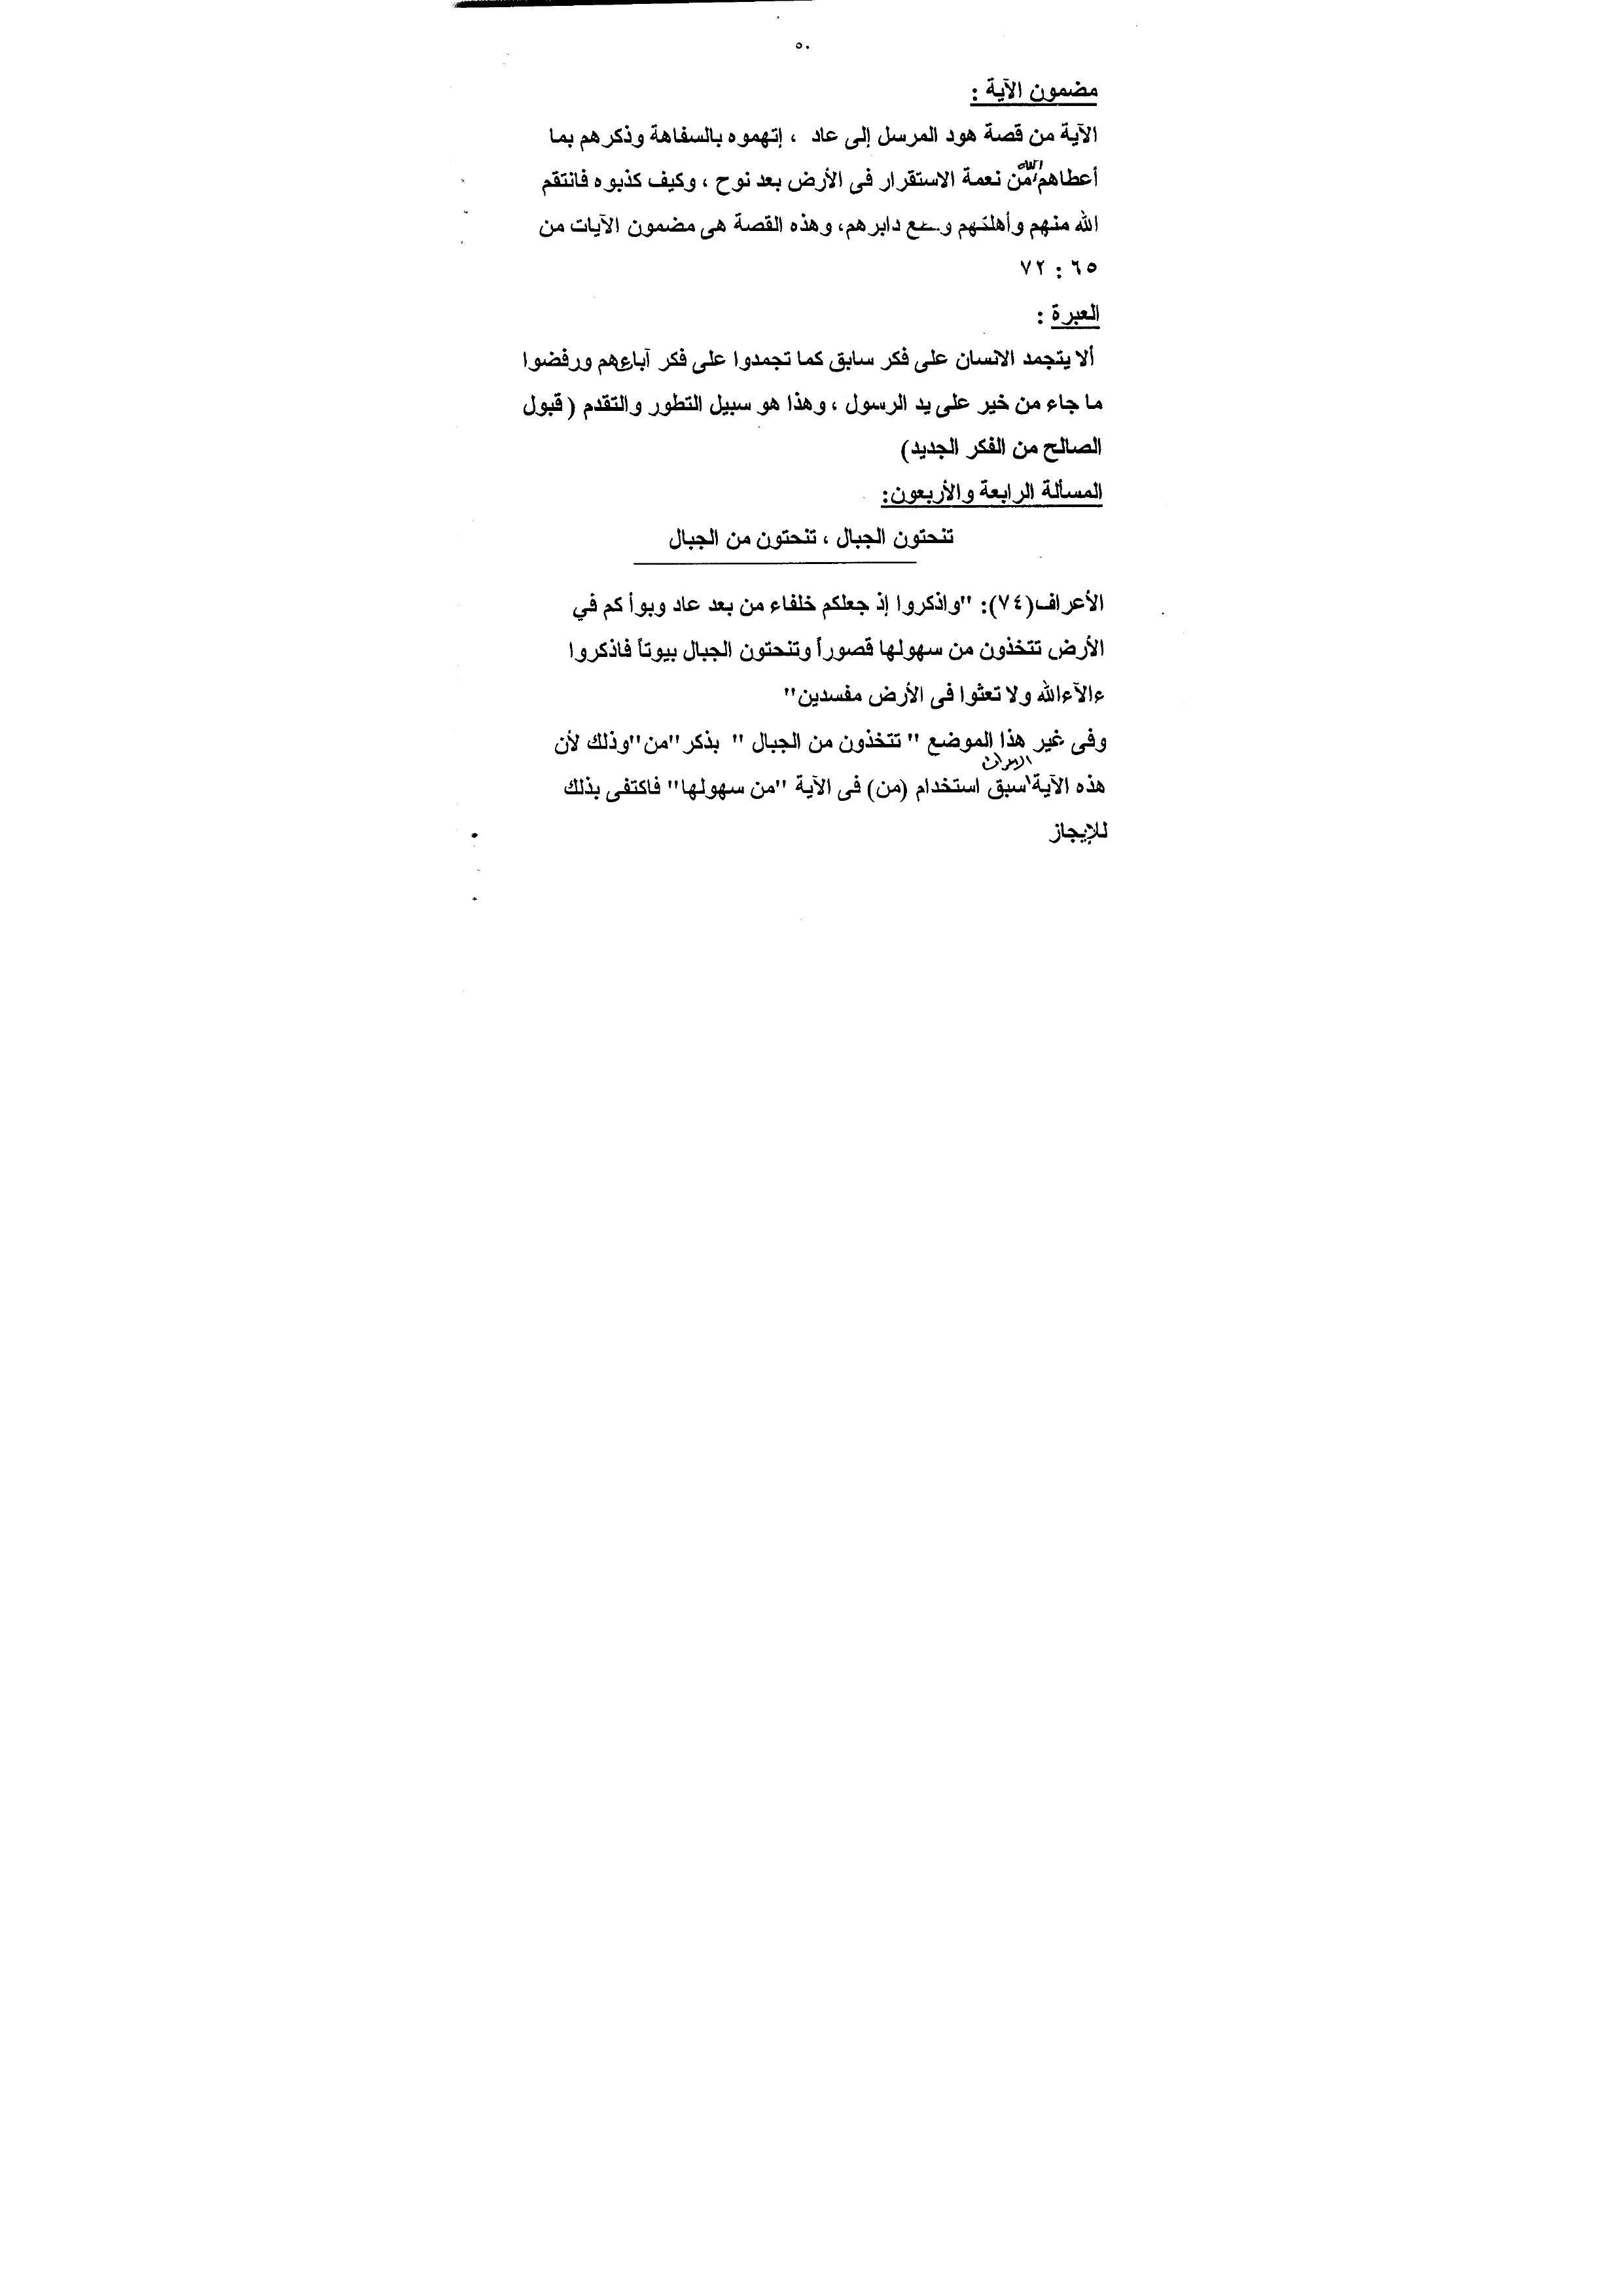 ٥٠
مضمون الآية :
الآية من قصة هود المرسل إلى عاد ، إتهموه بالسفاهة وذكرهم بما
أعطاهم الله من نعمة الاستقرار فى الأرض بعد نوح ، وكيف كذبوه فانتقم
الله منهم وأهلكهم دابرهم، وهذه القصة هى مضمون الآيات من
٦٥ : ٧٢
العبرة :
ألا يتجمد الانسان على فكر سابق كما تجمدوا على فكر آباءهم ورفضوا
ما جاء من خير على يد الرسول ، وهذا هو سبيل التطور والتقدم ( قبول
الصالح من الفكر الجديد)
المسألة الرابعة والأربعون:
تنحتون الجبال ، تنحتون من الجبال
الأعراف(٧٤): "واذكروا إذ جعلكم خلفاء من بعد عاد وبوأ كم في
الأرض تتخذون من سهولها قصوراً وتنحتون الجبال بيوتاً فاذكروا
ءالآءالله ولا تعثوا فى الأرض مفسدين"
وفى غير هذا الموضع " تتخذون من الجبال " بذكر "من"وذلك لأن
هذه الآية سبق استخدام (من) فى الآية "من سهولها" فاكتفى بذلك
للإيجاز